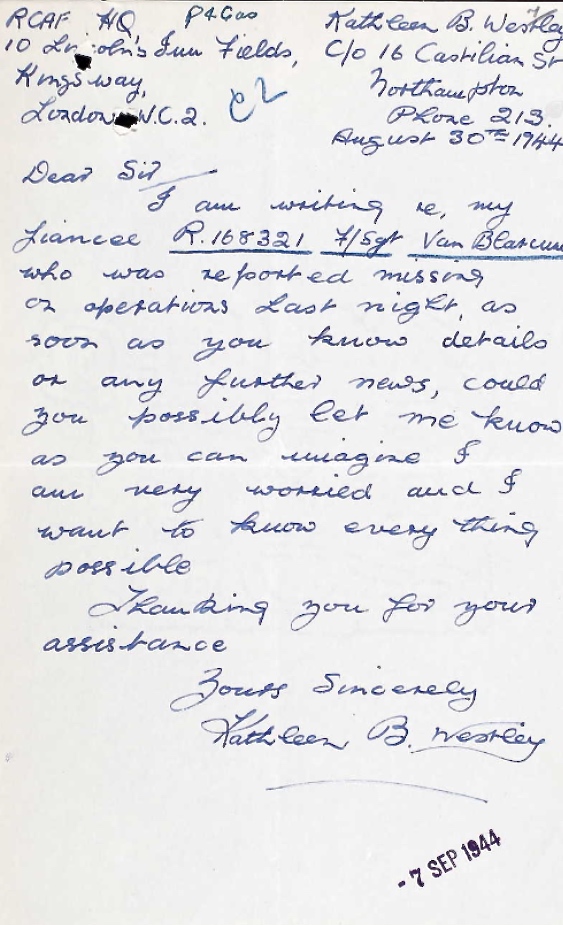 RCAF HQ, P4Cas
10 Lincoln's Inn Fields,
Kingsway,
London W.C.2.
Kathleen B. Westley
C/o 16 Castilian St
Northampton
Phone 213.
August 30TH 1944
Dear Sir
I am writing re, my
fiancee R.168321 F/Sgt Van Blarcum
who was reported missing
on operations last night, as
soon as you know details
or any further news, could
you possibly let me know
as you can imagine I
am very worried and I
want to know every thing
possible
Thanking you for your
assistance
Yours Sincerely
Kathleen B. Westley
- 7 SEP 1944